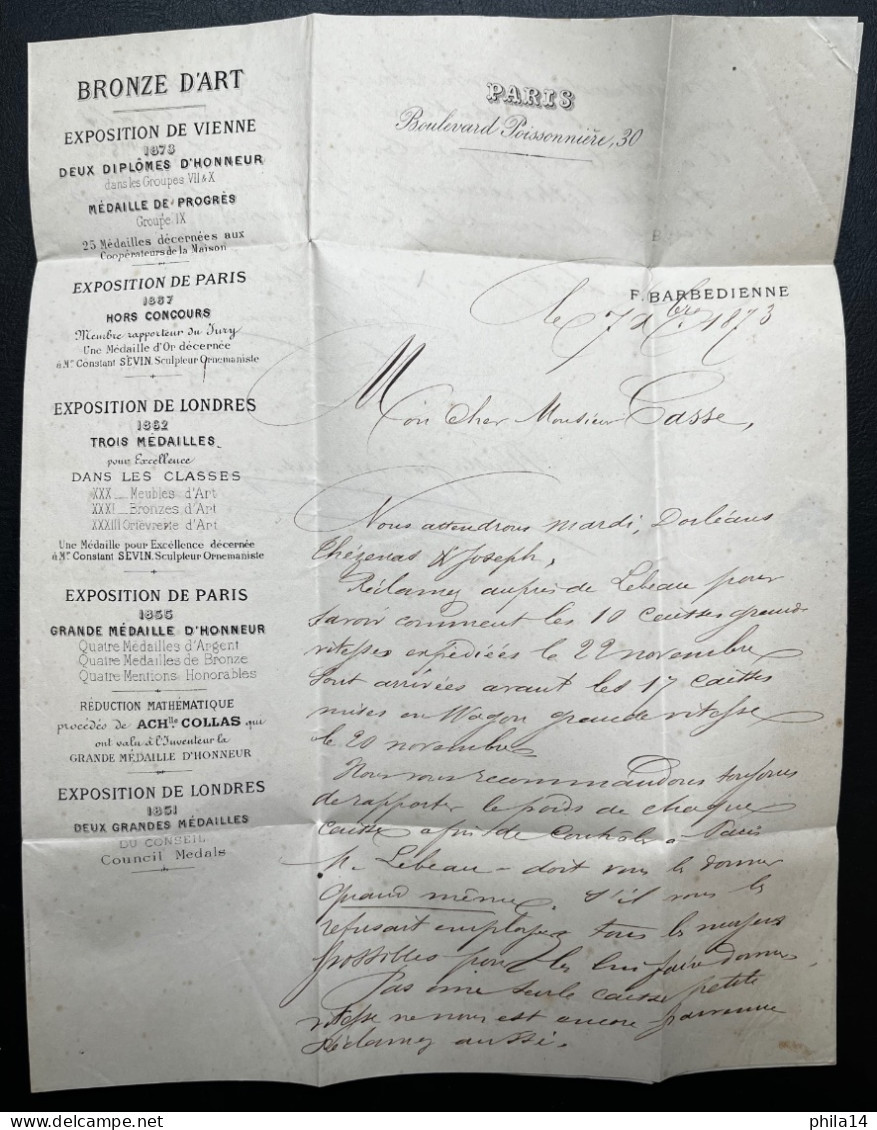 BRONZE D'ART
EXPOSITION DE VIENNE
1873
DEUX DIPLÔMES D'HONNEUR
dans les Groupes VII & X
MÉDAILLE DE PROGRÈS
Groupe IX
25 Médailles décernées aux
Coopérateurs de la Maison
EXPOSITION DE PARIS
1867
HORS CONCOURS
Membre rapporteur du Jury
Une Médaille d'Or décernée
à Mr Constant SÉVIN, Sculpteur Ornemaniste
EXPOSITION DE LONDRES
1862
TROIS MÉDAILLES
pour Excellence
DANS LES CLASSES
XXX__Meubles d'Art
XXXI__Bronzes d'Art
XXXIII Orfèvrerie d'Art
Une Médaille pour Excellence décernée
à Mr Constant SÉVIN, Sculpteur Ornemaniste
EXPOSITION DE PARIS
1855
GRANDE MÉDAILLE D'HONNEUR
Quatre Médailles d'Argent
Quatre Médailles de Bronze
Quatre Mentions Honorables
RÉDUCTION MATHÉMATIQUE
procédés de ACHlle COLLAS qui
ont valu à l'Inventeur la
GRANDE MÉDAILLE D'HONNEUR
EXPOSITION DE LONDRES
1851
DEUX GRANDES MÉDAILLES
DU CONSEIL
Council Medals
PARIS
Boulevard Poissonnière, 30
F. BARBEDIENNE
le 7 Xbre 1873
Mon Cher Monsieur Casse,
Nous attendrons mardi, Dorléans
Chézenas & Joseph,
Réclamez auprès de Lebeau pour
savoir comment les 10 caisses grande
vitesse expédiées le 22 novembre
sont arrivées avant les 17 caisses
mises en Wagon grande vitesse
le 20 novembre
Nous vous recommandons toujours
de rapporter le poids de chaque
caisse afin de contrôler à Paris
M. Lebeau doit vous le donner
quand même. S'il vous le
refusait employez tous les moyens
possibles pour les lui faire donner
Pas une seule caisse petite
vitesse ne nous est encore parvenue
Réclamez aussi.
phila14